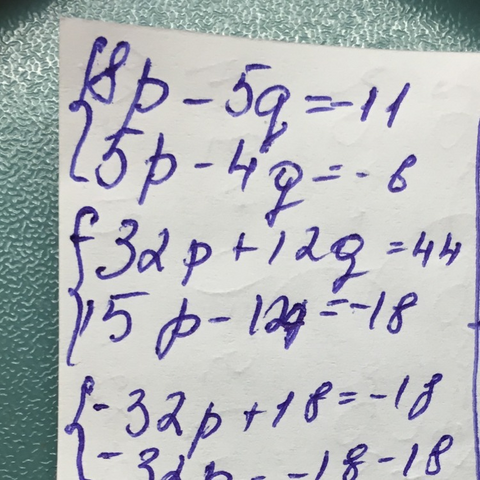 {8p - 5q = -11
{5p - 4q = -6
{-32p + 12q = 44
{15p - 12q = -18
{-32p + 18 = -18
{-32p = -18 - 18